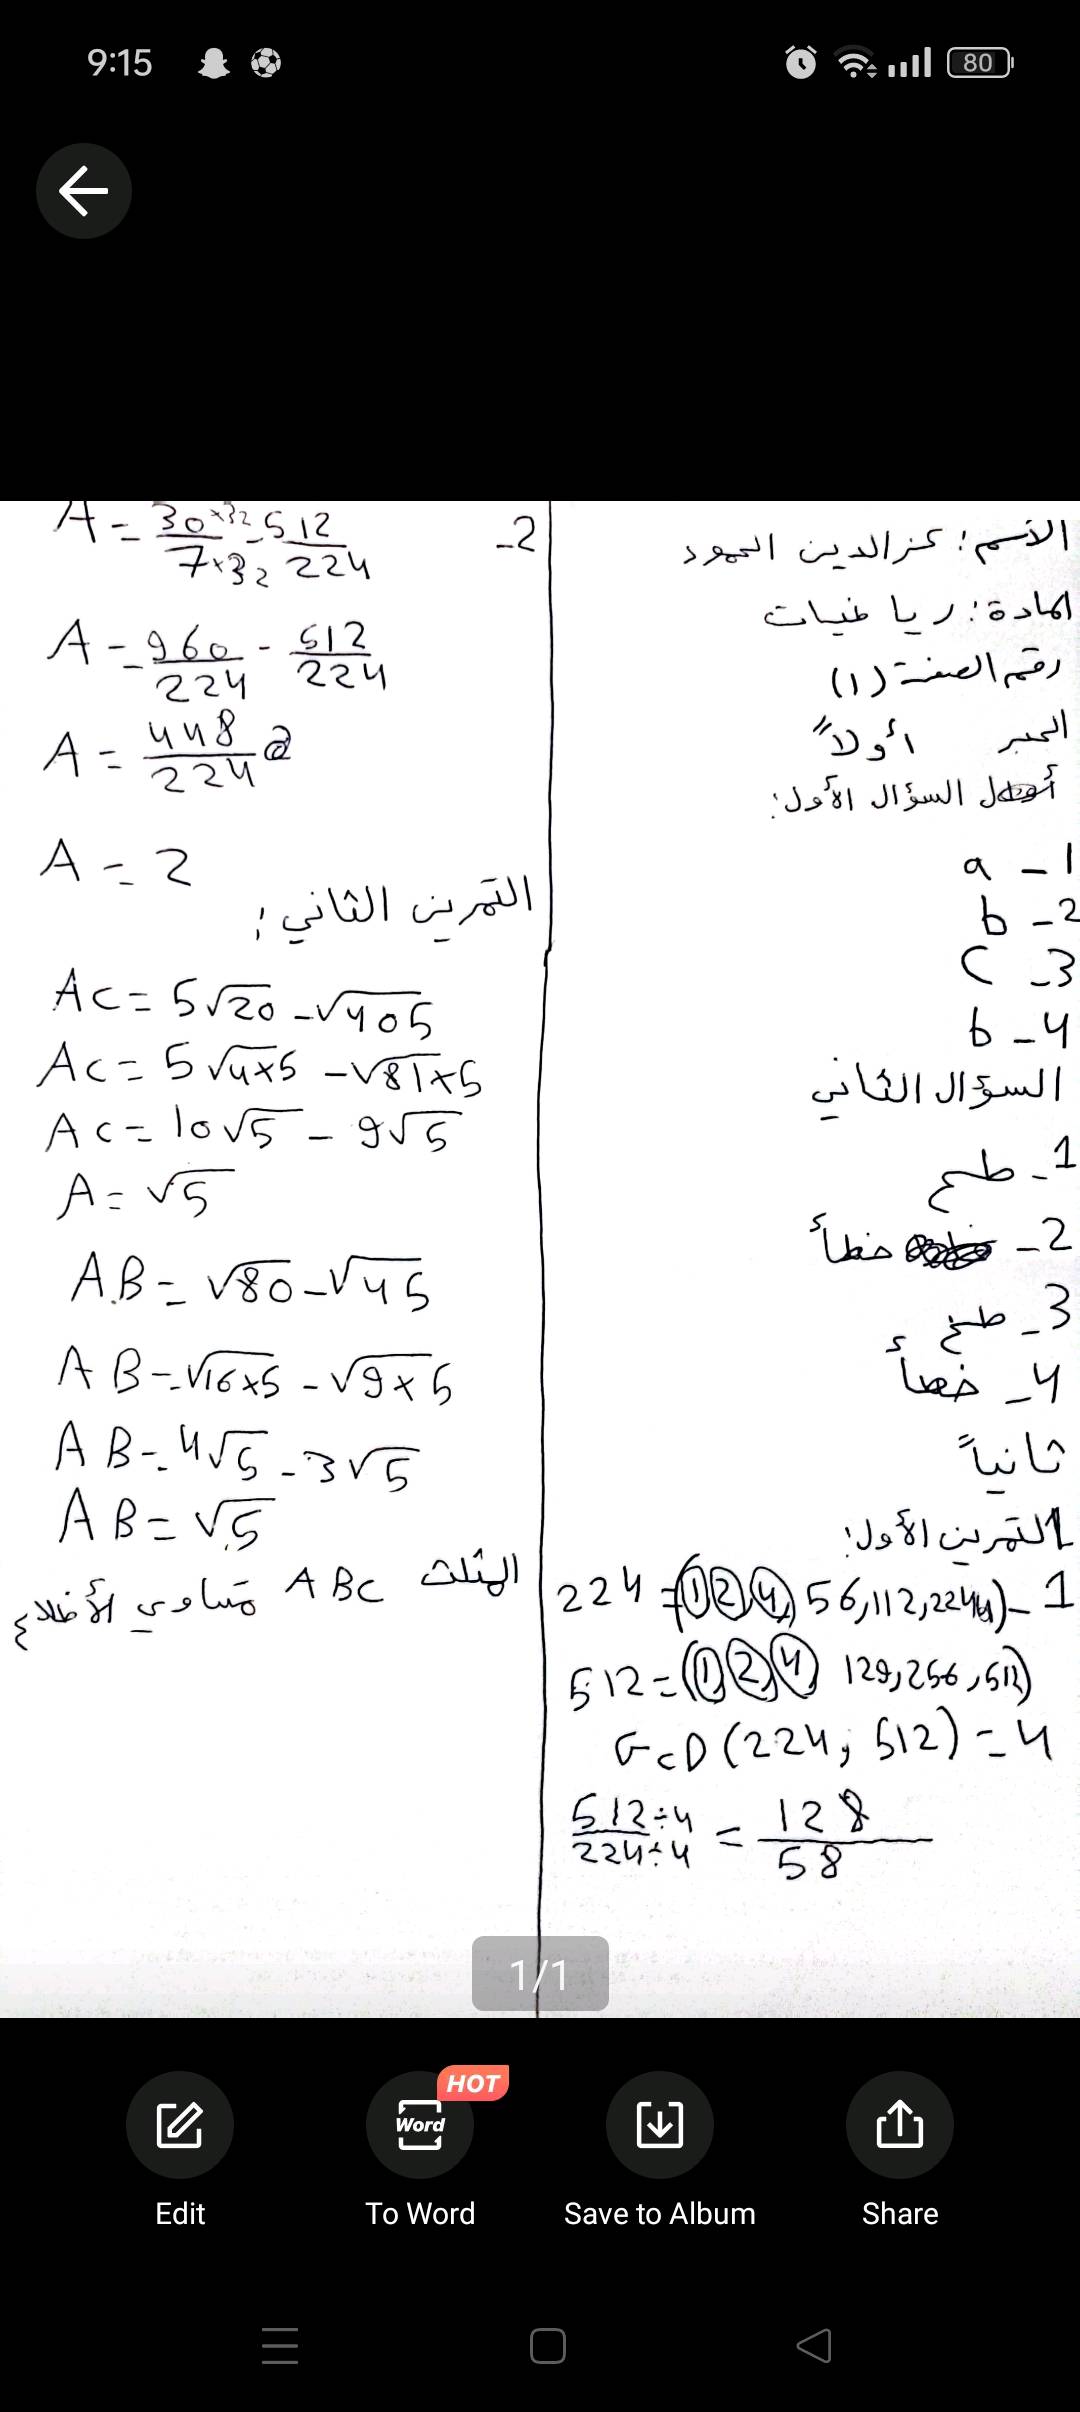 9:15
80
الاسم: عز الدين الحمود
المادة: رياضيات
رقم الصفحة (1)
الجبر أولاً
السؤال الأول:
1 - a
2 - b
3 - C
4 - b
السؤال الثاني
1 - صح
2 - خطأ
3 - صح
4 - خطأ
ثانياً
التمرين الأول:
1 - 224 = (1, 2, 4, 56, 112, 224)
512 = (1, 2, 4, 128, 256, 512)
GCD (224 ; 512) = 4
512÷4 / 224÷4 = 128 / 58
2-
A = 30×32 / 7×32 - 512 / 224
A = 960 / 224 - 512 / 224
A = 448 / 224
A = 2
التمرين الثاني:
AC = 5√20 - √405
AC = 5√4×5 - √81×5
AC = 10√5 - 9√5
A = √5
AB = √80 - √45
AB = √16×5 - √9×5
AB = 4√5 - 3√5
AB = √5
المثلث ABC متساوي الأضلاع
1/1
HOT
Word
Edit
To Word
Save to Album
Share